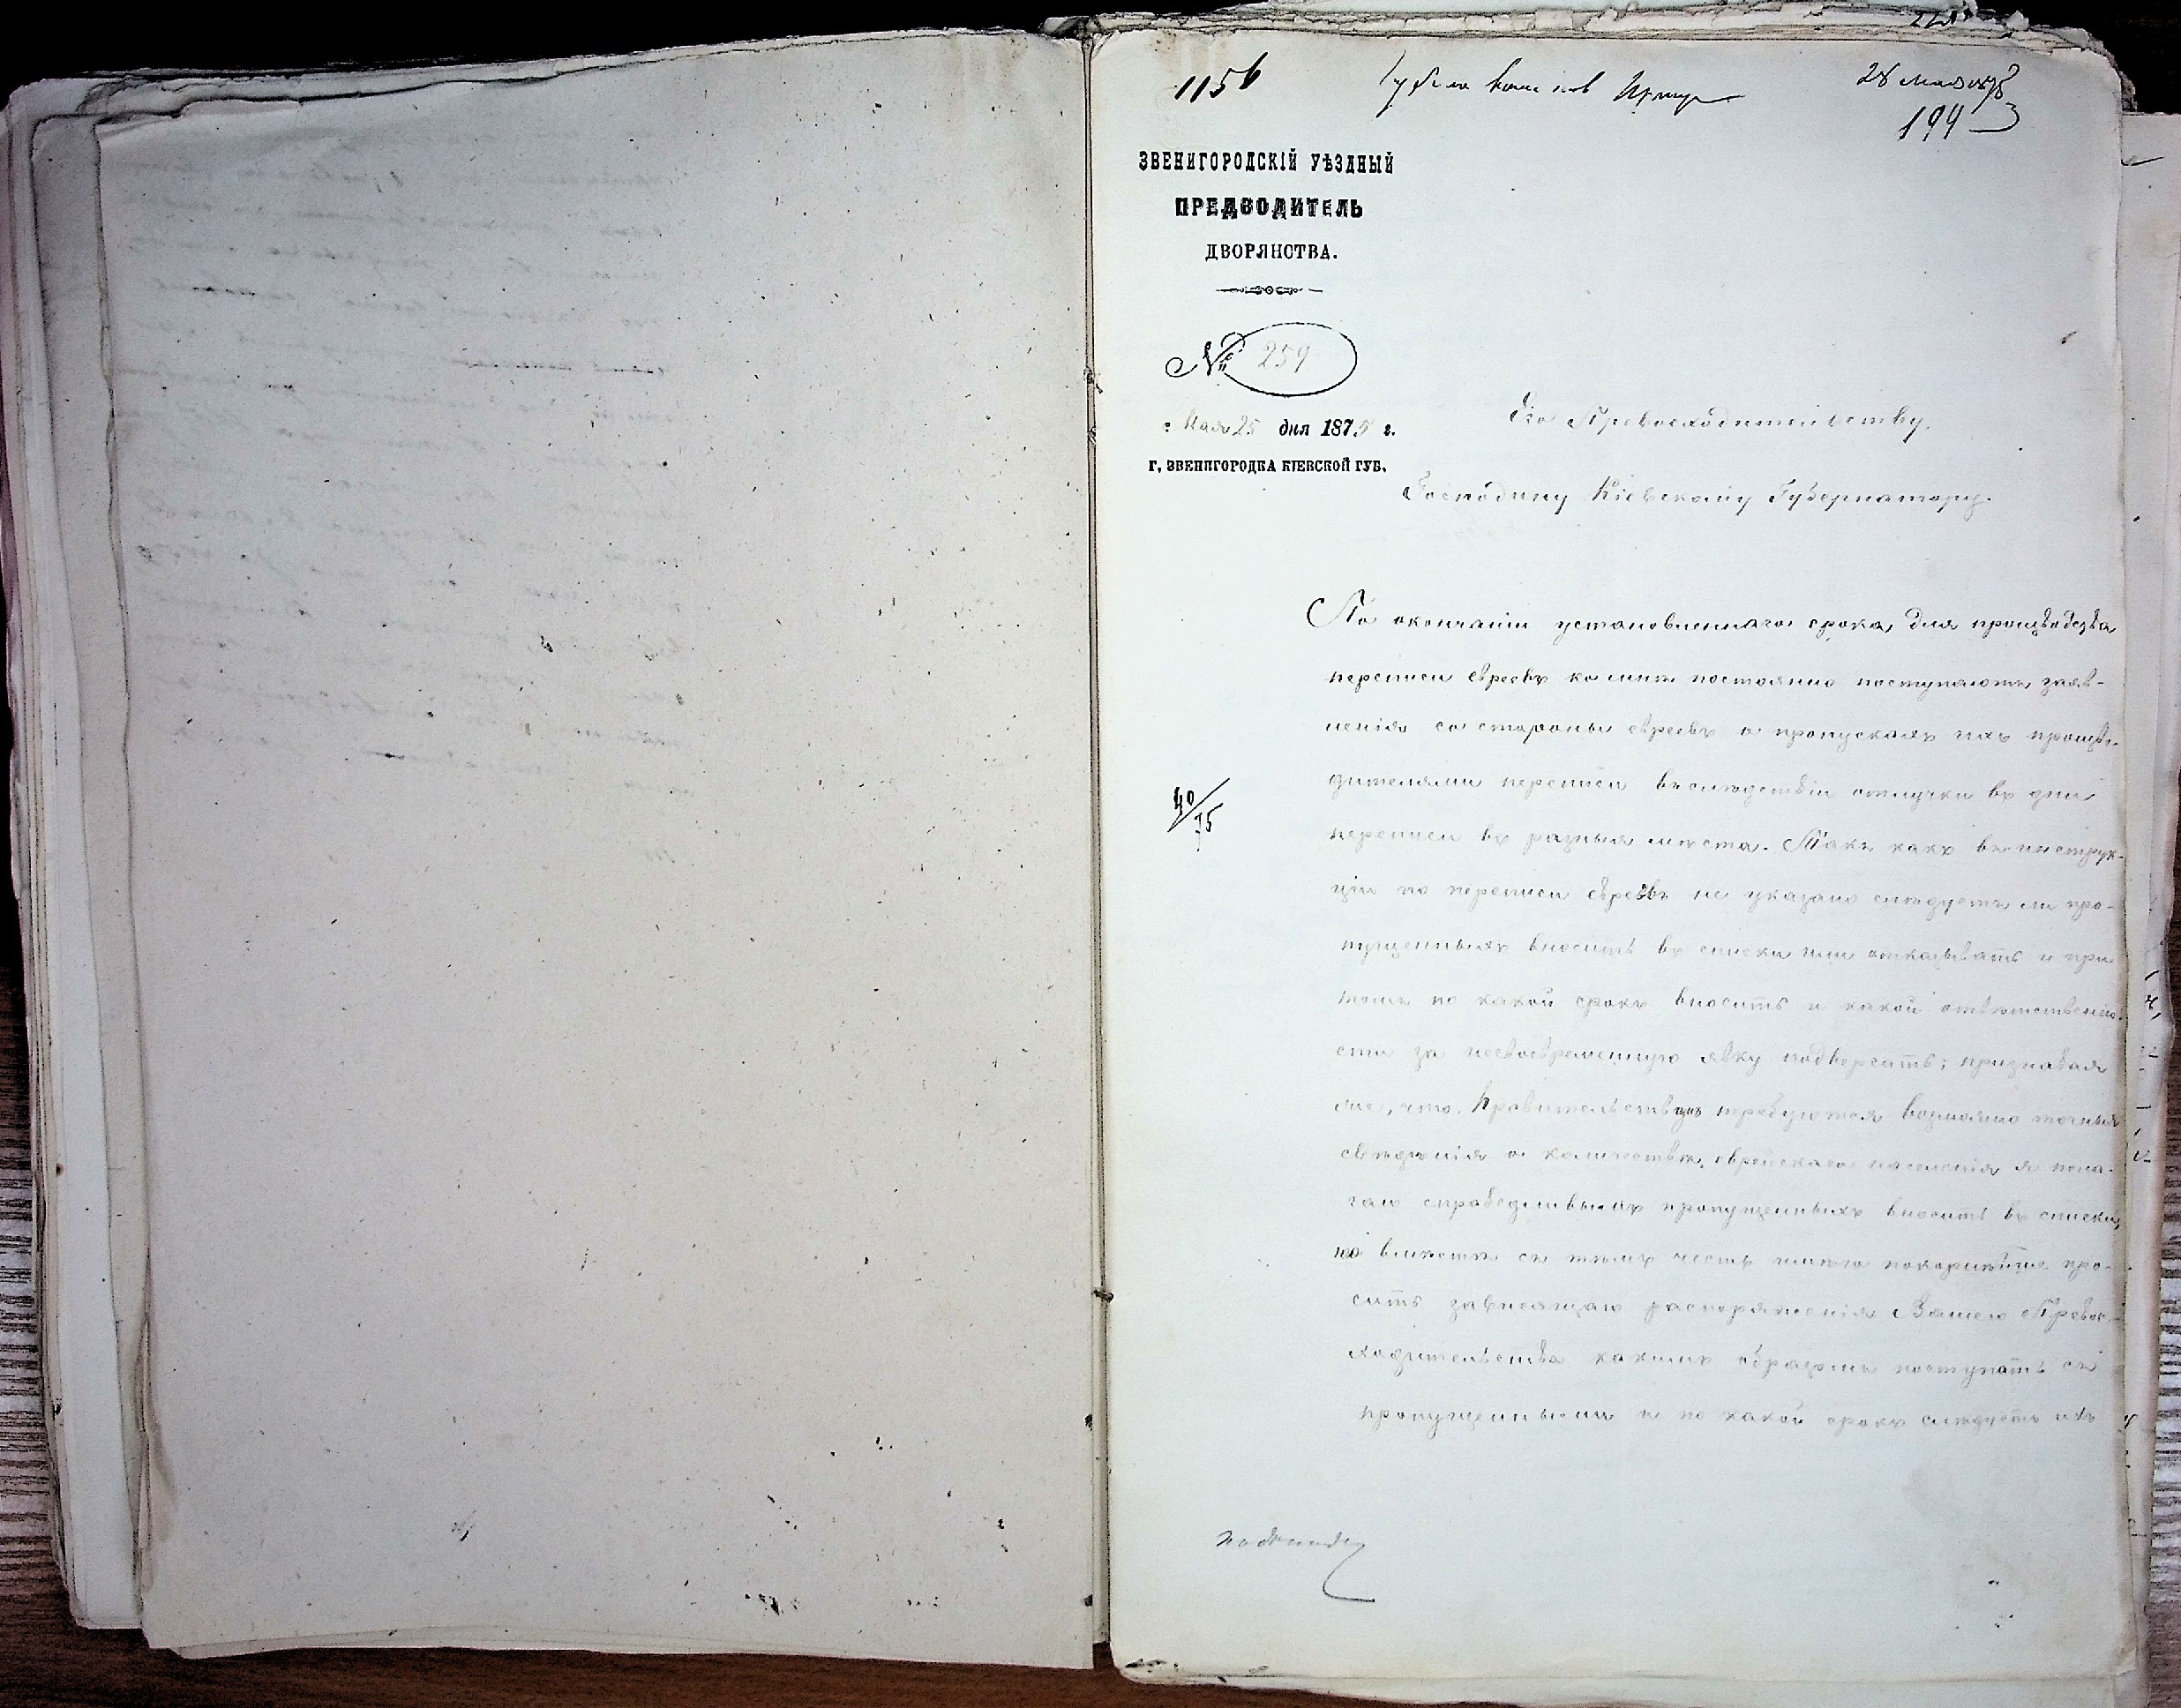 1156
28 мая 1875
194
ЗВЕНИГОРОДСКІЙ УѢЗДНЫЙ
ПРЕДВОДИТЕЛЬ
ДВОРЯНСТВА.
№ 259
Мая 25 дня 1875 г.
Г. ЗВЕНИГОРОДКА КІЕВСКОЙ ГУБ.
Его Превосходительству,
Господину Кіевскому Губернатору.
По окончаніи установленнаго срока, для производства
переписи евреевъ ко мнѣ постоянно поступаютъ заяв-
ленія со стороны евреевъ о пропускахъ ихъ произво-
дителями переписи вслѣдствіи отлучки въ дни
40/75
переписи въ разныя мѣста. Такъ какъ въ инструк-
ціи по переписи евреевъ не указано слѣдуетъ ли про-
пущенныхъ вносить въ списки или отказывать и при
томъ по какой срокъ вносить и какой отвѣтственно-
сти за несвоевременную явку подвергать; признавая
же, что Правительствомъ требуются возможно точныя
свѣдѣнія о количествѣ еврейскаго населенія я пола-
гаю справедливымъ пропущенныхъ вносить въ списки,
но вмѣстѣ съ тѣмъ честь имѣю покорнѣйше про-
сить зависящаго распоряженія Вашего Превос-
ходительства какимъ образомъ поступать съ
пропущенными и по какой срокъ слѣдуетъ ихъ